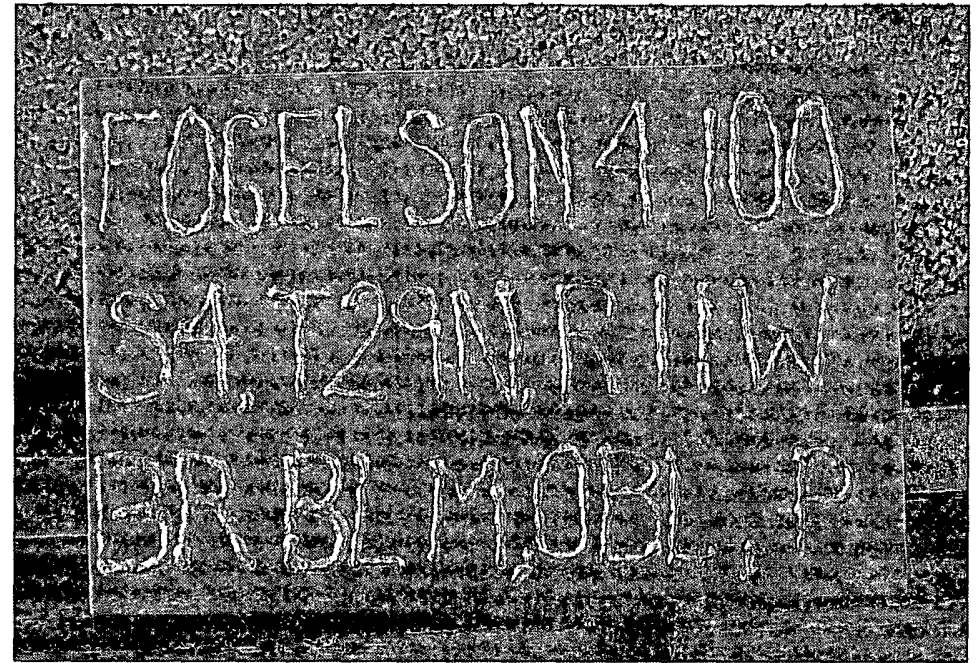 FOGELSON 4 100
S4, T29N, R11W
BR BLM, OBL, P